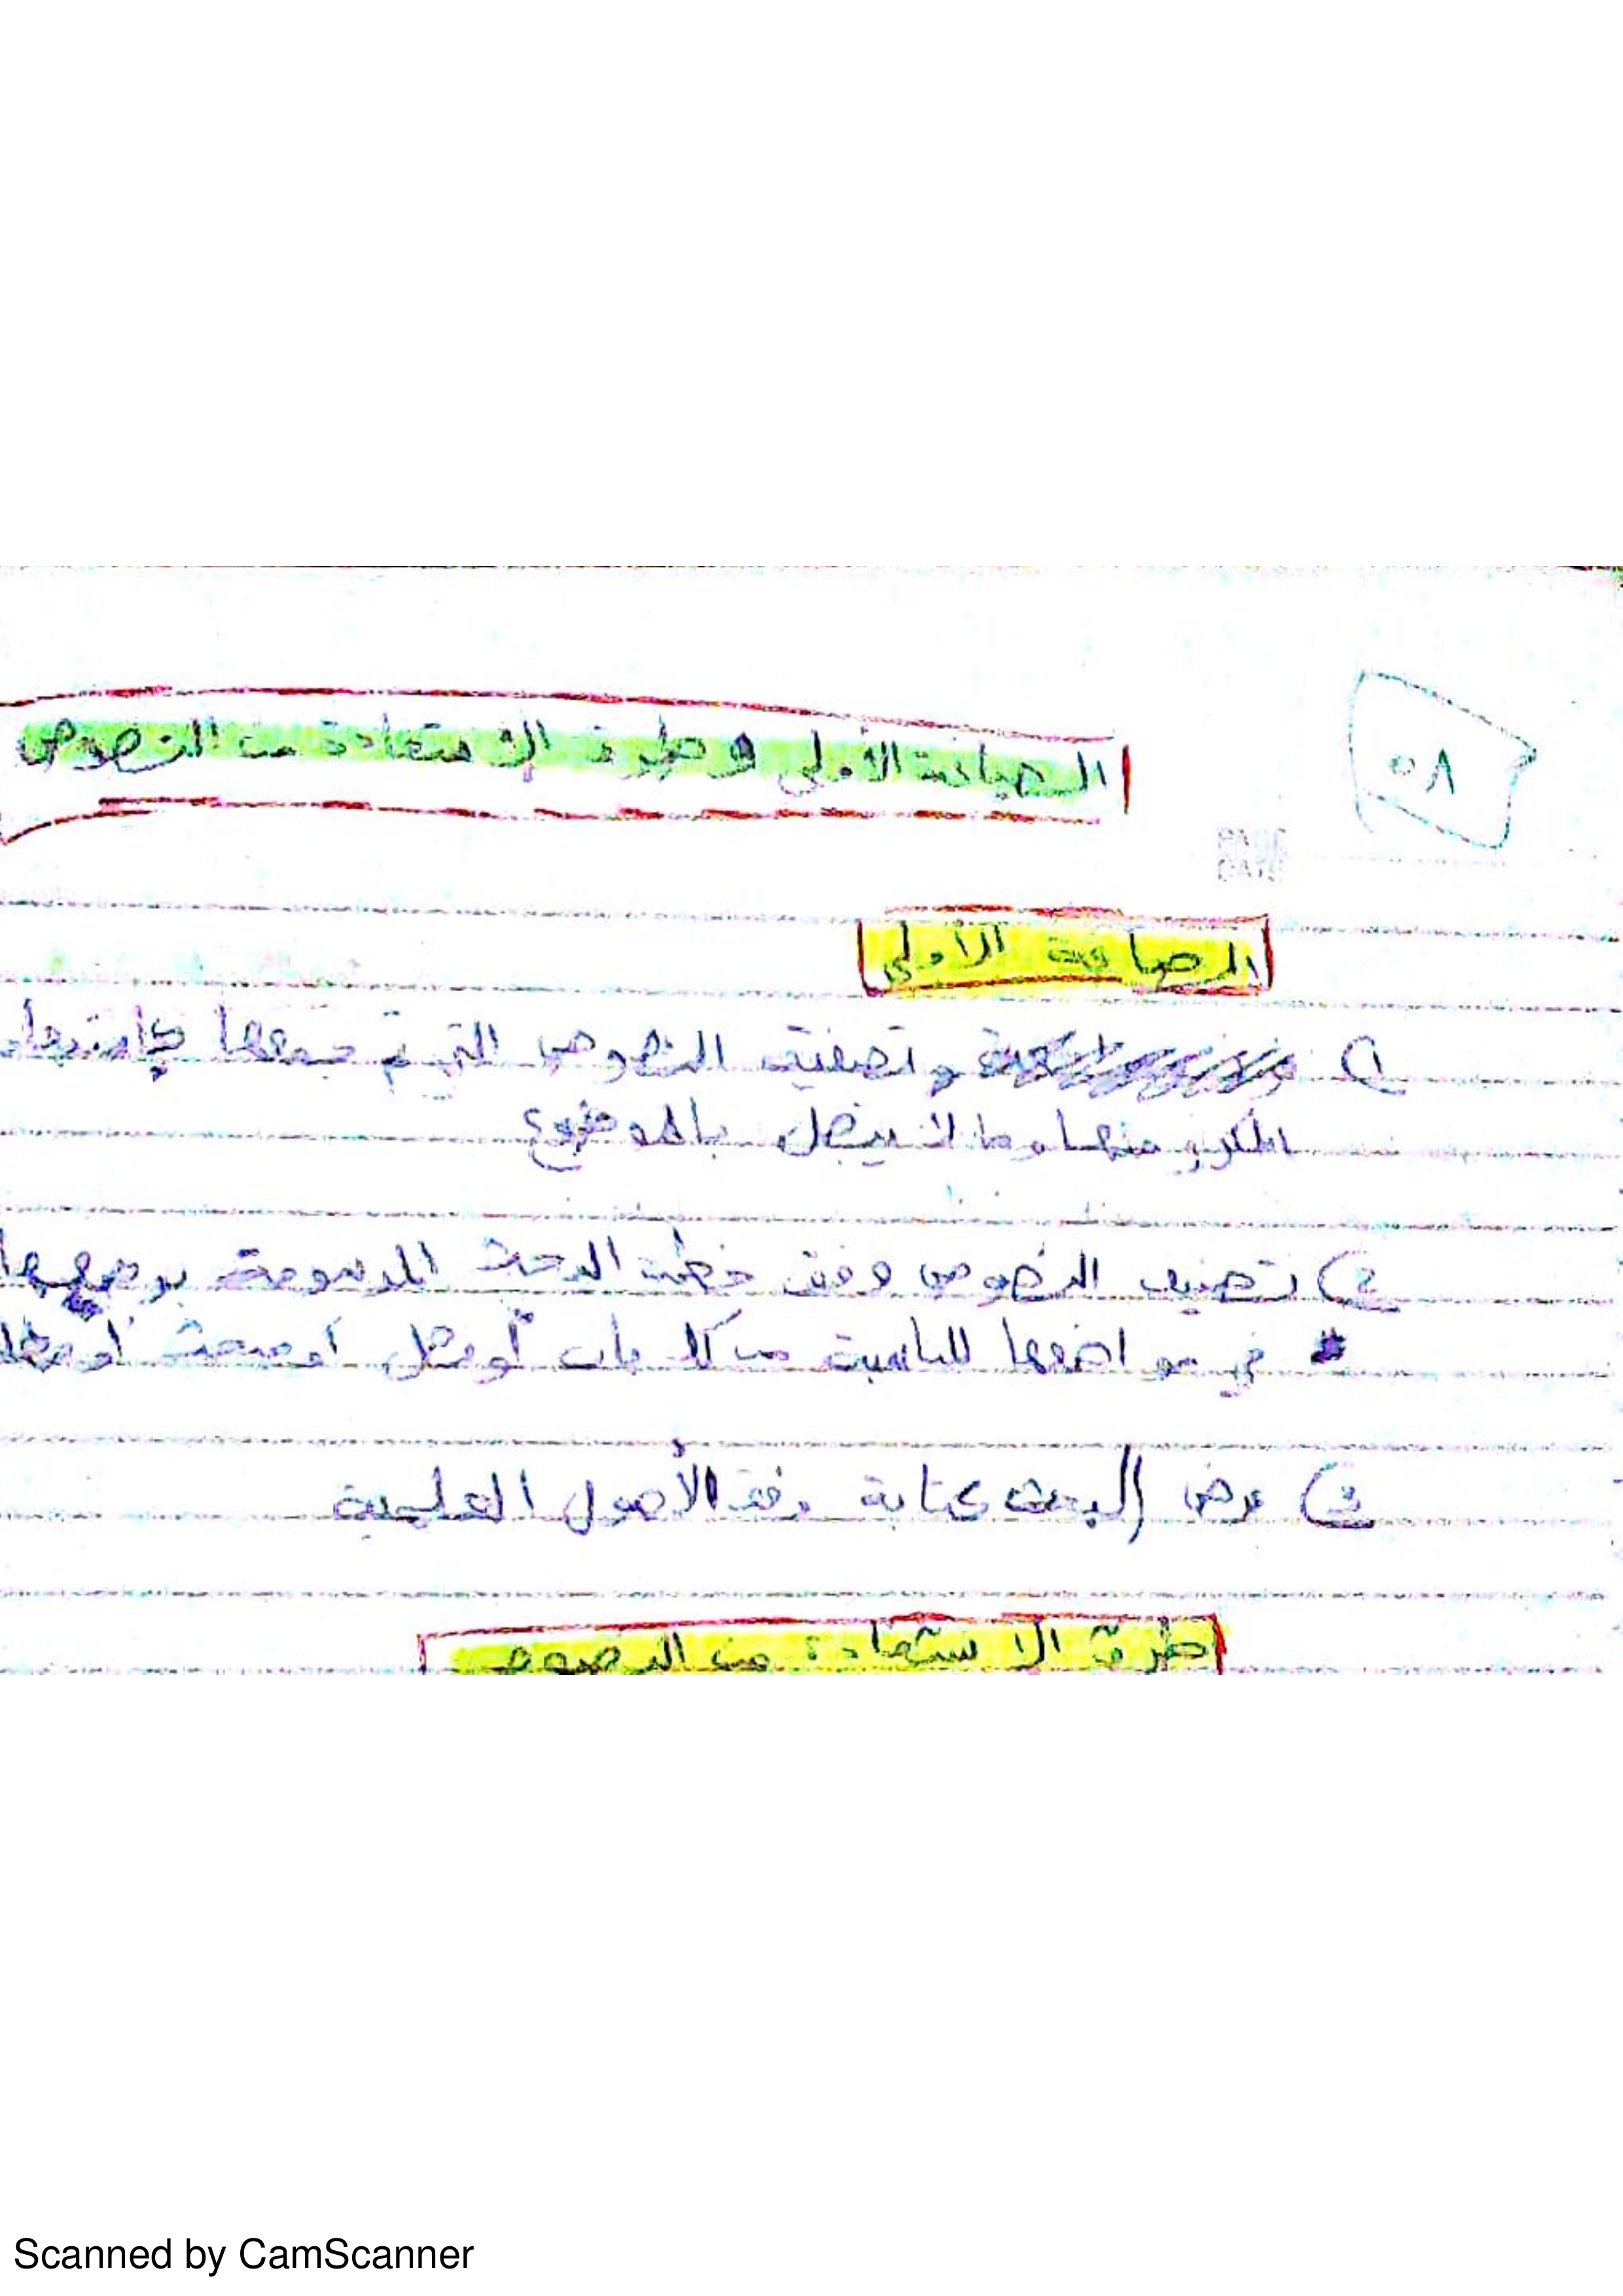 ٥٨
الصياغة الأولى وطرق الاستفادة من النصوص
الصياغة الأولى
١) وتصفية النصوص التي تم جمعها باستبعاد
المكرر منها وما لا يتصل بالموضوع
٢) تصنيف النصوص وفق خطة البحث المرسومة بوضعها
في مواضعها المناسبة من كل باب أو فصل أو مبحث أو
٣) عرض البحث كتابة وفق الأصول العلمية
طرق الاستفادة من النصوص
Scanned by CamScanner